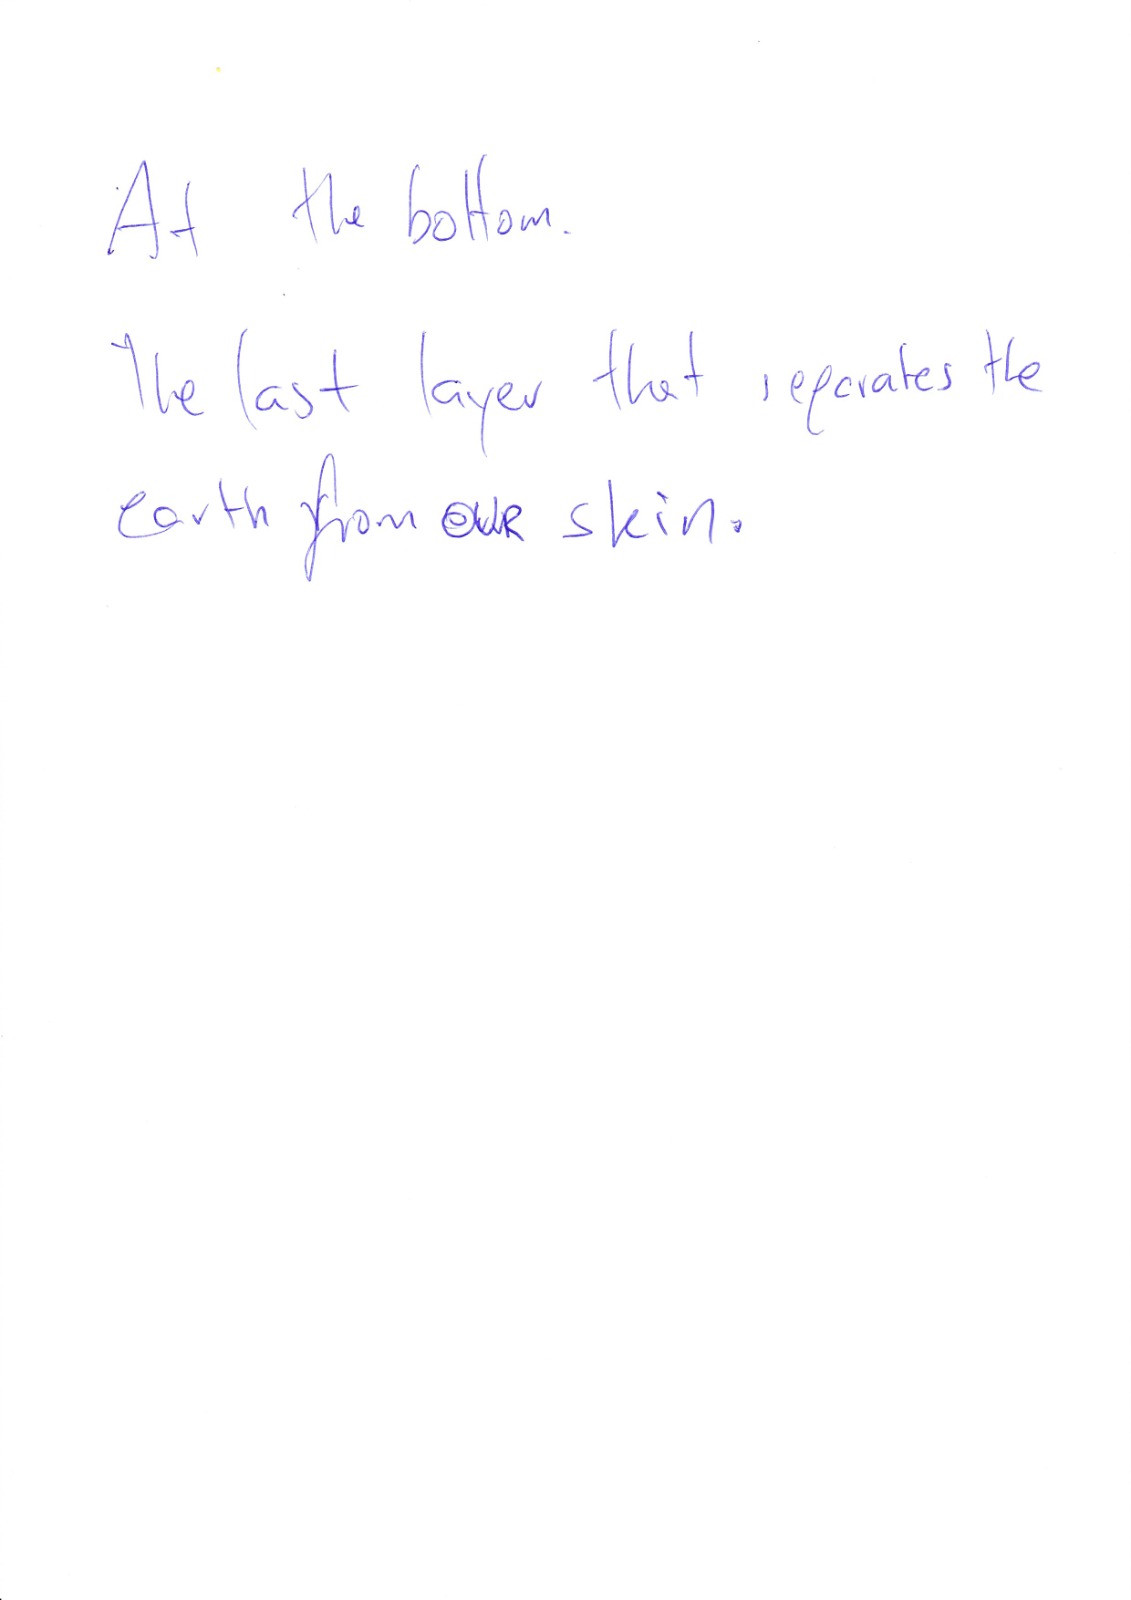 At the bottom.
The last layer that separates the
earth from OUR skin.